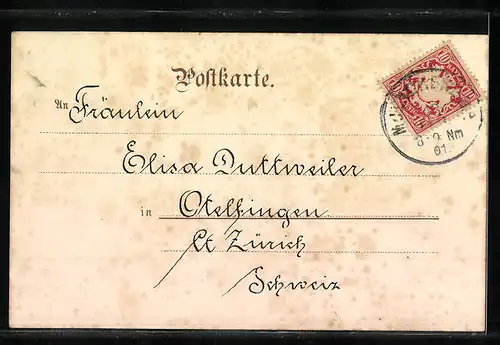 Postkarte.
An Fräulein
Elisa Duttweiler
in Otelfingen
Kt Zürich
Schweiz
10 10
8-9 Nm
01